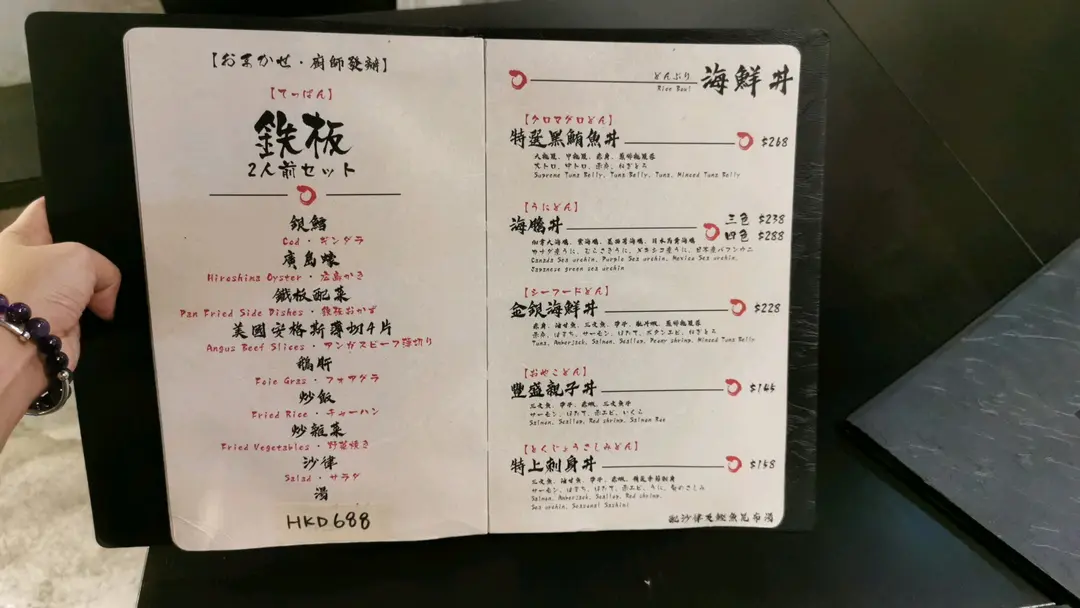 【おまかせ・廚師發辦】
【てっぱん】
鉄板
2人前セット
銀鱈
Cod・ギンダラ
廣島蠔
Hiroshima Oyster・広島かき
鐵板配菜
Pan Fried Side Dishes・鉄板おかず
美國安格斯薄切4片
Angus Beef Slices・アンガスビーフ薄切り
鵝肝
Foie Gras・フォアグラ
炒飯
Fried Rice・チャーハン
炒雜菜
Fried Vegetables・野菜焼き
沙律
Salad・サラダ
湯
HKD688
どんぶり
Rice Bowl
海鮮丼
【クロマグロどん】
特選黑鮪魚丼 $268
大トロ、中トロ、赤身、ねぎとろ
Supreme Tuna Belly, Tuna Belly, Tuna, Minced Tuna Belly
【うにどん】
海膽丼 三色 $238
四色 $288
加拿大海膽、紫海膽、墨西哥海膽、日本馬糞海膽
カナダ産うに、むらさきうに、メキシコ産うに、日本産バフンウニ
Canada Sea urchin, Purple Sea urchin, Mexico Sea urchin,
Japanese green sea urchin
【シーフードどん】
金銀海鮮丼 $228
赤身、油甘魚、三文魚、帶子、牡丹蝦、
赤身、はまち、サーモン、ほたて、ボタンエビ、ねぎとろ
Tuna, Amberjack, Salmon, Scallop, Peony shrimp, Minced Tuna Belly
【おやこどん】
豐盛親子丼
三文魚、帶子、赤蝦、三文魚子
サーモン、ほたて、赤エビ、いくら
Salmon, Scallop, Red shrimp, Salmon Roe
【とくじょうさしみどん】
特上刺身丼 $158
三文魚、油甘魚、帶子、赤蝦、精選季節刺身
サーモン、はまち、ほたて、赤エビ、うに、旬のさしみ
Salmon, Amberjack, Scallop, Red shrimp,
Sea urchin, Seasonal Sashimi
配沙律及鰹魚昆布湯